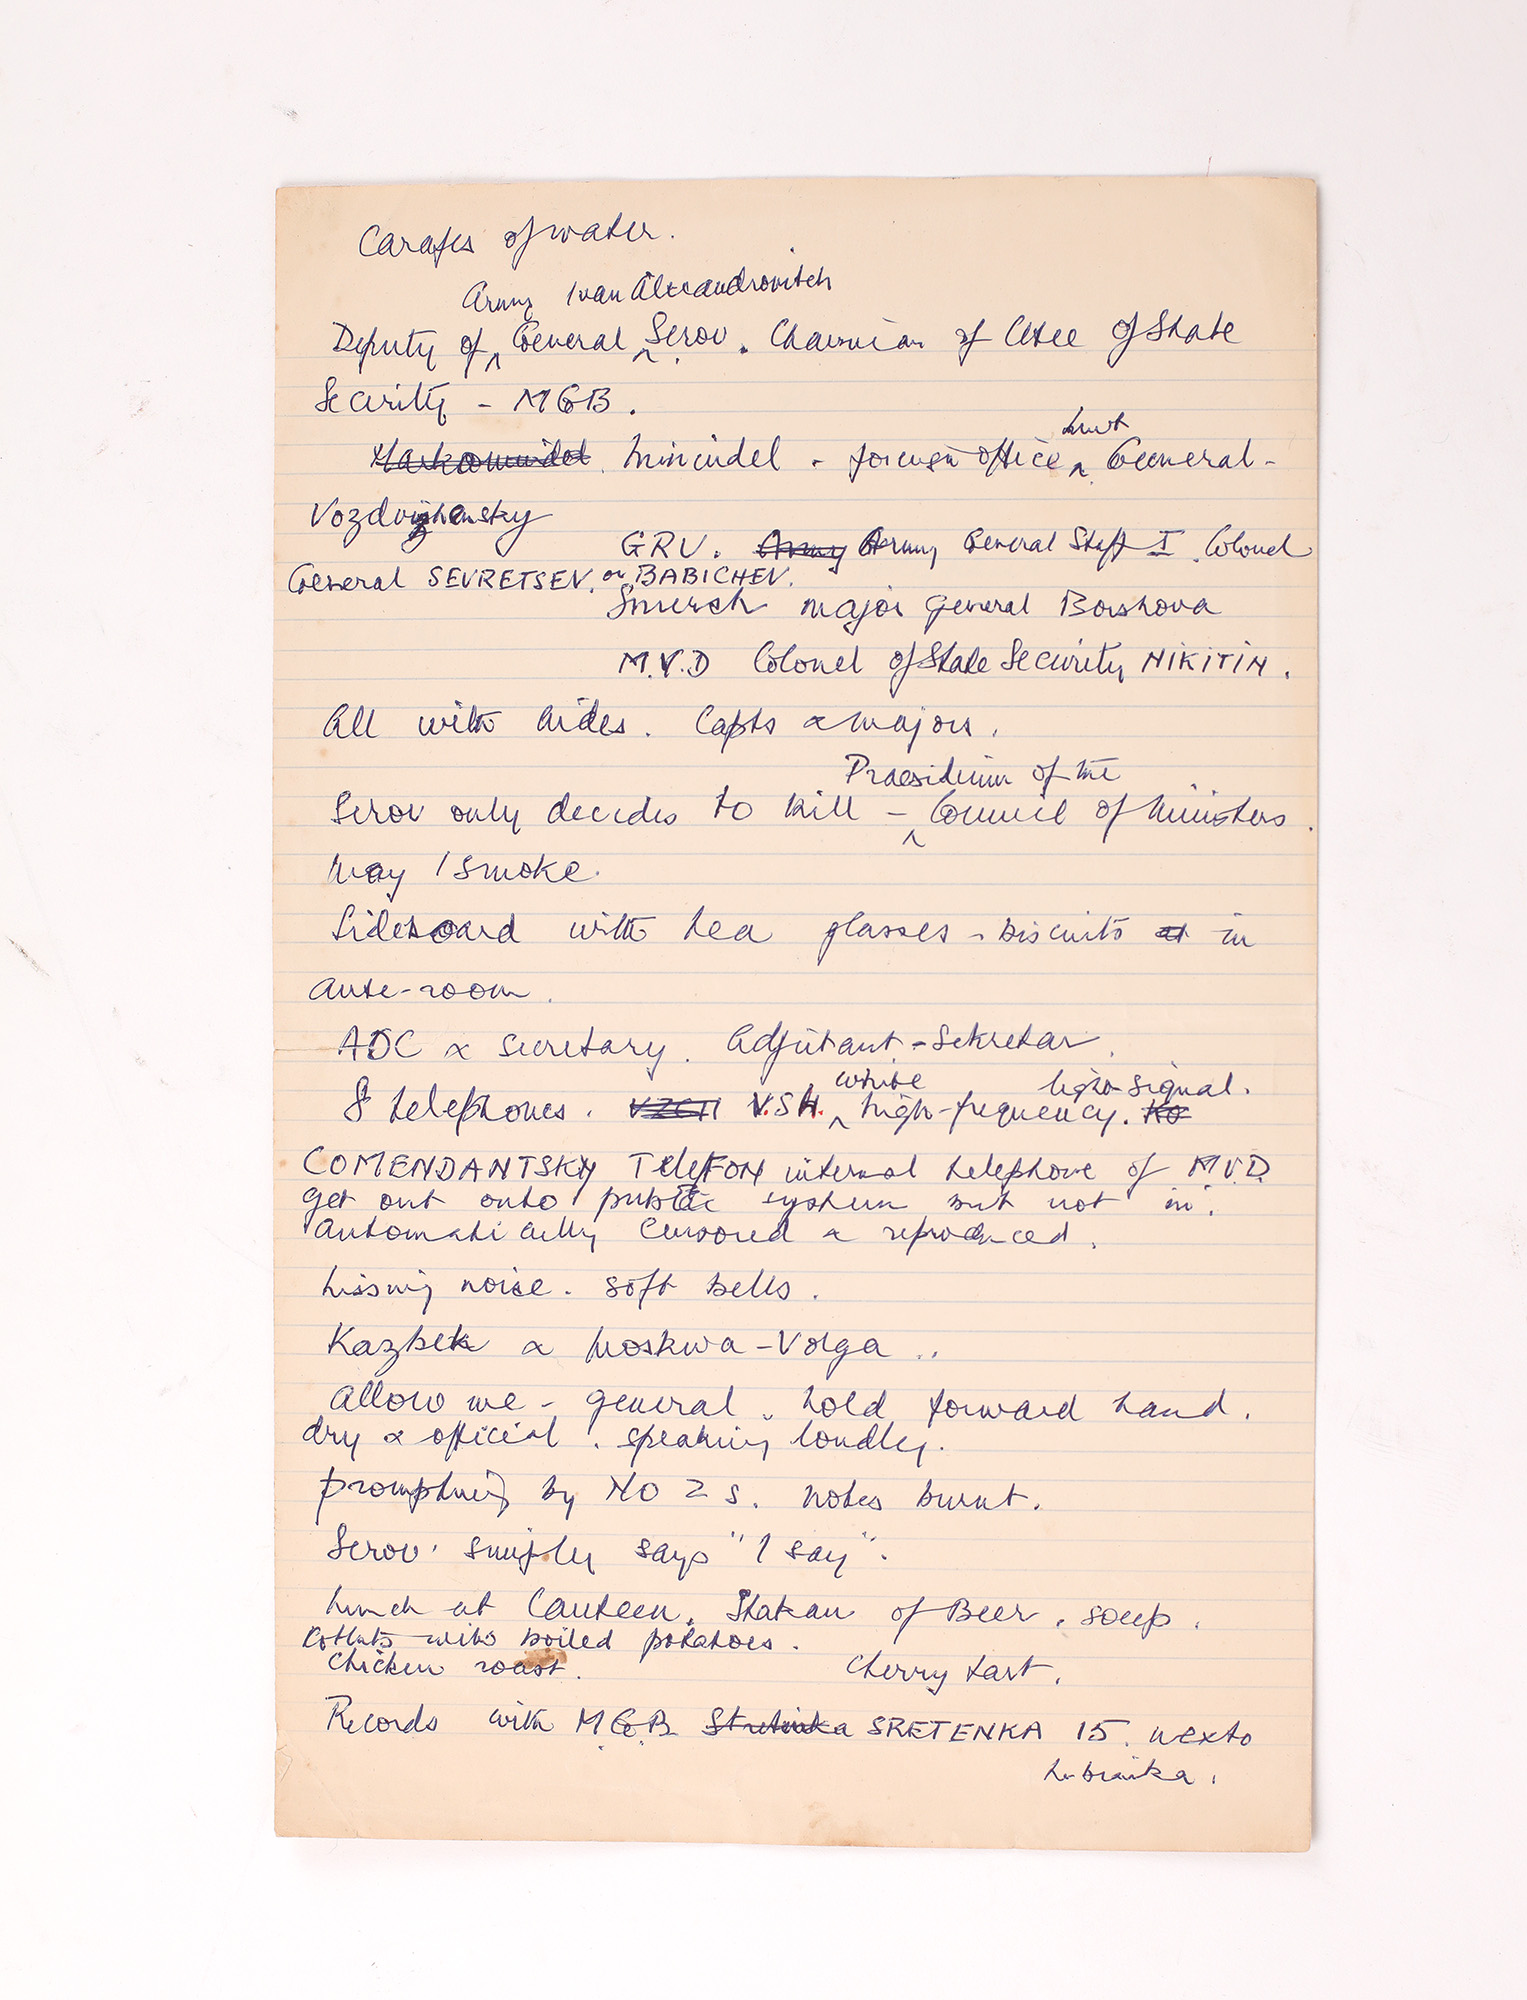 Carafes of water.
Army Ivan Alexandrovitch
Deputy of General Serov. Chairman of Cttee of State
Security - MGB.
Minindel - foreign office General -
Vozdvizhensky
GRU. Army Army General Staff I Colonel
General SEVRETSEV. or BABICHEV.
Smersh major general Borshova
M.V.D Colonel of State Security NIKITIN.
All with aides. Capts & majors.
Praesidium of the
Serov only decides to kill - Council of Ministers.
May I smoke.
Sideboard with tea glasses - biscuits at in
ante-room.
ADC & secretary. Adjutant - Sekretar.
white light signal.
8 telephones. V.S.H. high-frequency. Ko
COMENDANTSKY TELEFON internal telephone of M.V.D
get out onto public system but not in.
Automatically censored & reproduced.
hissing noise. soft bells.
Kazbek & Moskwa-Volga ..
Allow me - general. hold forward hand.
dry & official. speaking loudly.
prompting by NO 2s. notes burnt.
Serov. simply says "I say".
Lunch at Canteen. Stakan of Beer. soup.
Kotlets with boiled potatoes.
Chicken roast. Cherry tart.
Records with M.G.B. Stretinka SRETENKA 15. next to
Lubianka.